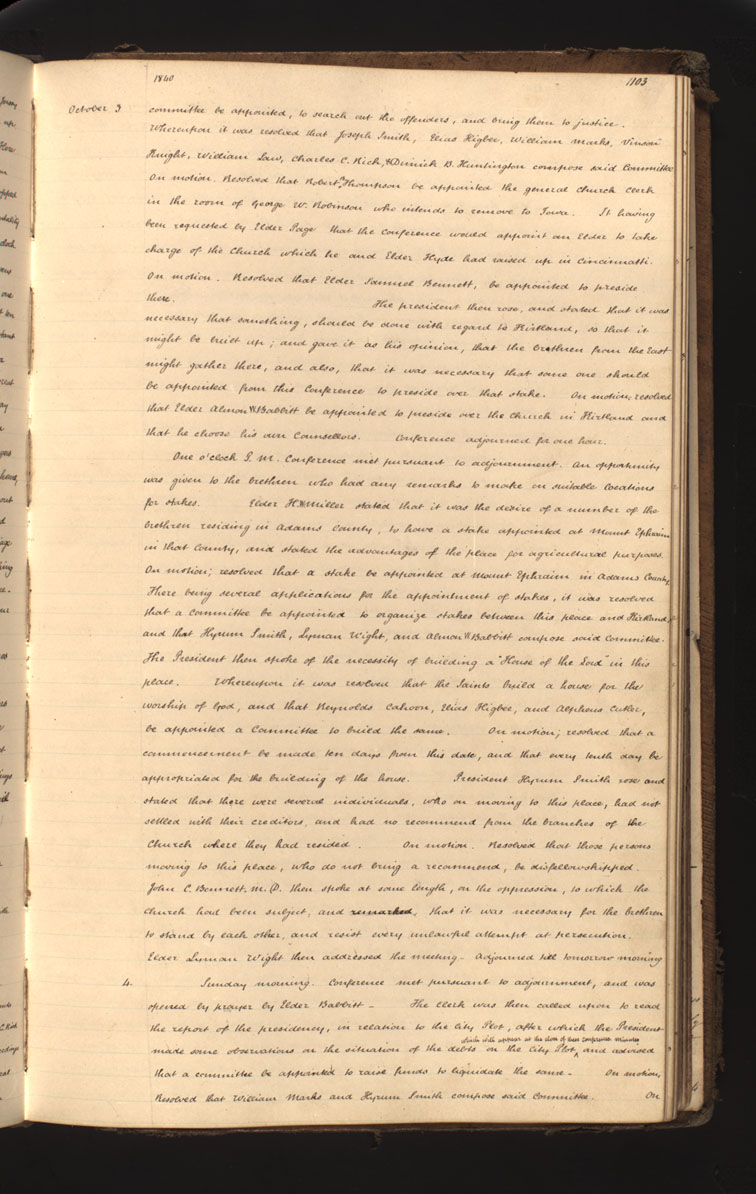 1840
1103
October 3 committee be appointed, to search out the offenders, and bring them to justice.
Whereupon it was resolved that Joseph Smith, Elias Higbee, William Marks, Vinson
Knight, William Law, Charles C. Rich, & Dimick B. Huntington compose said Committee
On motion. Resolved that Robert B. Thompson be appointed the general Church Clerk
in the room of George W. Robinson who intends to remove to Iowa. It having
been requested by Elder Page that the Conference would appoint an Elder to take
charge of the Church which he and Elder Hyde had raised up in Cincinnatti.
On motion. Resolved that Elder Samuel Bennett, be appointed to preside
there. The president then rose, and stated that it was
necessary that something, should be done with regard to Kirtland, so that it
might be built up; and gave it as his opinion, that the brethren from the East
might gather there, and also, that it was necessary that some one should
be appointed from this Conference to preside over that stake. On motion, resolved
that Elder Almon W. Babbitt be appointed to preside over the Church in Kirtland and
that he choose his own Counsellors. Conference adjourned for one hour.
One o'clock P. M. Conference met pursuant to adjournment. An opportunity
was given to the brethren who had any remarks to make on suitable locations
for stakes. Elder H. W. Miller stated that it was the desire of a number of the
brethren residing in Adams County, to have a stake appointed at Mount Ephraim
in that County, and stated the advantages of the place for agricultural purposes.
On motion; resolved that a stake be appointed at Mount Ephraim in Adams County.
There being several applications for the appointment of stakes, it was resolved
that a Committee be appointed to organize stakes between this place and Kirtland,
and that Hyrum Smith, Lyman Wight, and Almon W. Babbitt compose said Committee.
The President then spoke of the necessity of building a "House of the Lord" in this
place. Whereupon it was resolved that the Saints build a house for the
worship of God, and that Reynolds Cahoon, Elias Higbee, and Alpheus Cutler,
be appointed a Committee to build the same. On motion; resolved that a
commencement be made ten days from this date, and that every tenth day be
appropriated for the building of the house. President Hyrum Smith rose and
stated that there were several individuals, who on moving to this place, had not
settled with their creditors, and had no recommend from the branches of the
Church where they had resided. On motion. Resolved that those persons
moving to this place, who do not bring a recommend, be disfellowshipped.
John C. Bennett. M. D. then spoke at some length, on the oppression, to which the
Church had been subject, and remarked, that it was necessary for the brethren
to stand by each other, and resist every unlawful attempt at persecution.
Elder Lyman Wight then addressed the meeting - Adjourned till tomorrow morning
4. Sunday morning. Conference met pursuant to adjournment, and was
opened by prayer by Elder Babbitt - The clerk was then called upon to read
the report of the presidency, in relation to the City Plot, after which the President
which will appear at the close of these conference minutes
made some observations on the situation of the debts on the City Plot, and advised
that a committee be appointed to raise funds to liquidate the same - On motion,
Resolved that William Marks and Hyrum Smith compose said Committee. On